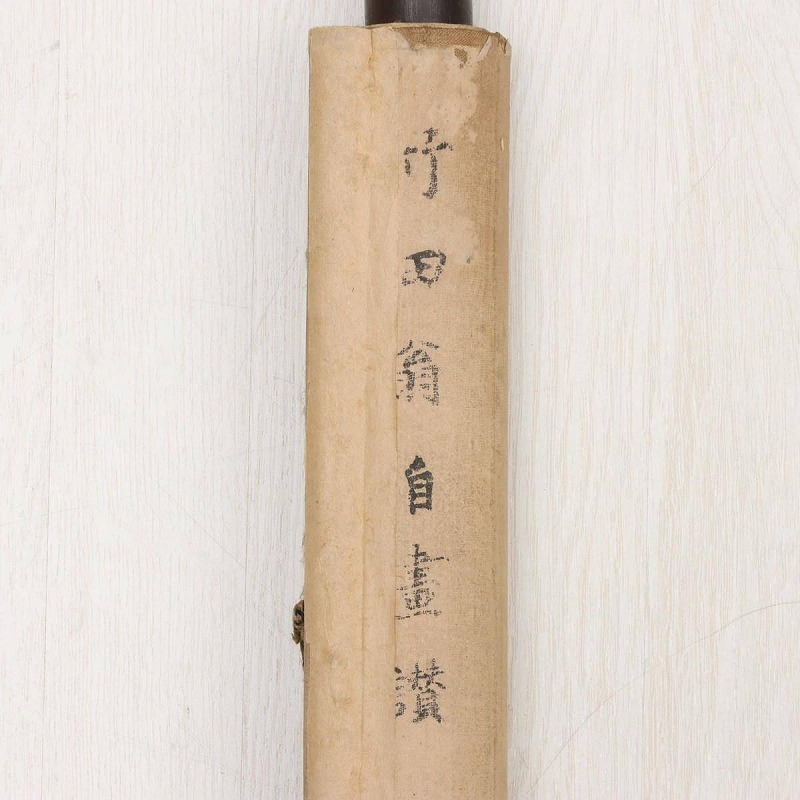 竹田翁自畫讃